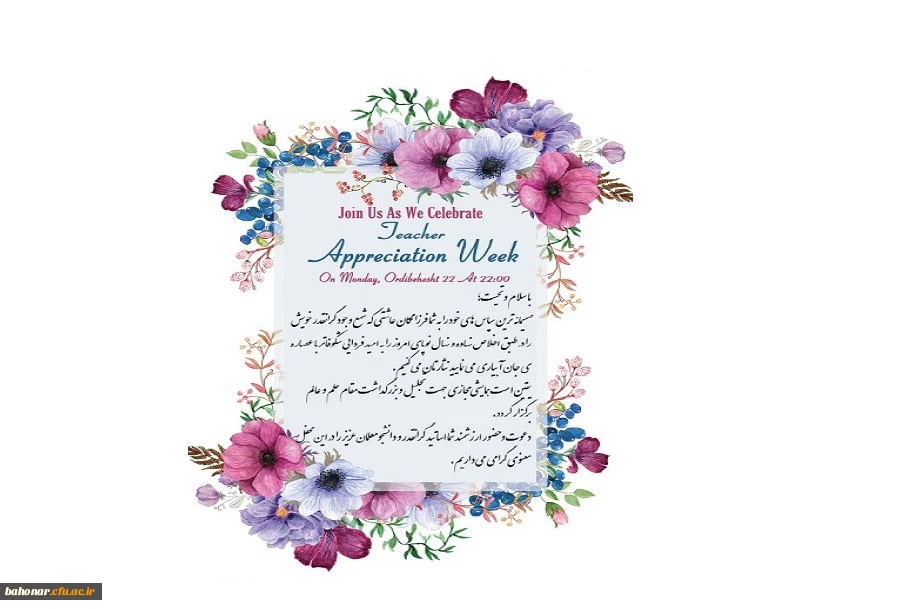 Join Us As We Celebrate
Teacher
Appreciation Week
On Monday, Ordibehesht 22 At 22:00
با سلام و تحیت؛
صمیمانه ترین سپاس های خود را به شما فرزانگان عاشقی که شمع وجود گرانقدر خویش
را در طبق اخلاص نهاده و نهال نوپای امروز را به امید فردایی شکوفاتر با عصاره
ی جان آبیاری می نمایید نثارتان می کنیم.
یقین است همایشی مجازی جهت تجلیل و بزرگداشت مقام علم و عالم
برگزار گردد.
دعوت و حضور ارزشمند شما اساتید گرانقدر و دانشجومعلمان عزیز را در این محفل
معنوی گرامی می داریم.
bahonar.cfu.ac.ir